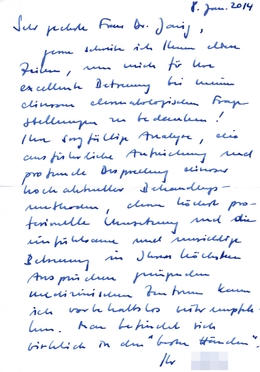 8. Jan. 2014
Sehr geehrte Frau Dr. Janig,
gerne schreibe ich Ihnen diese
Zeilen, um mich für Ihre
excellente Betreuung bei meinen
diversen dermatologischen Frage
stellungen zu bedanken!
Ihre sorgfältige Analyse, die
ausführliche Aufzeichnung und
profunde Besprechung diverser
hochaktueller Behandlungs-
methoden, deren höchst pro-
fessionelle Umsetzung und die
einfühlsame und umsichtige
Betreuung in Ihrem höchsten
Ansprüchen genügenden
medizinischen Zentrum kann
ich vorbehaltlos weiterempfeh-
len. Man befindet sich
wirklich in den "besten Händen".
Ihr